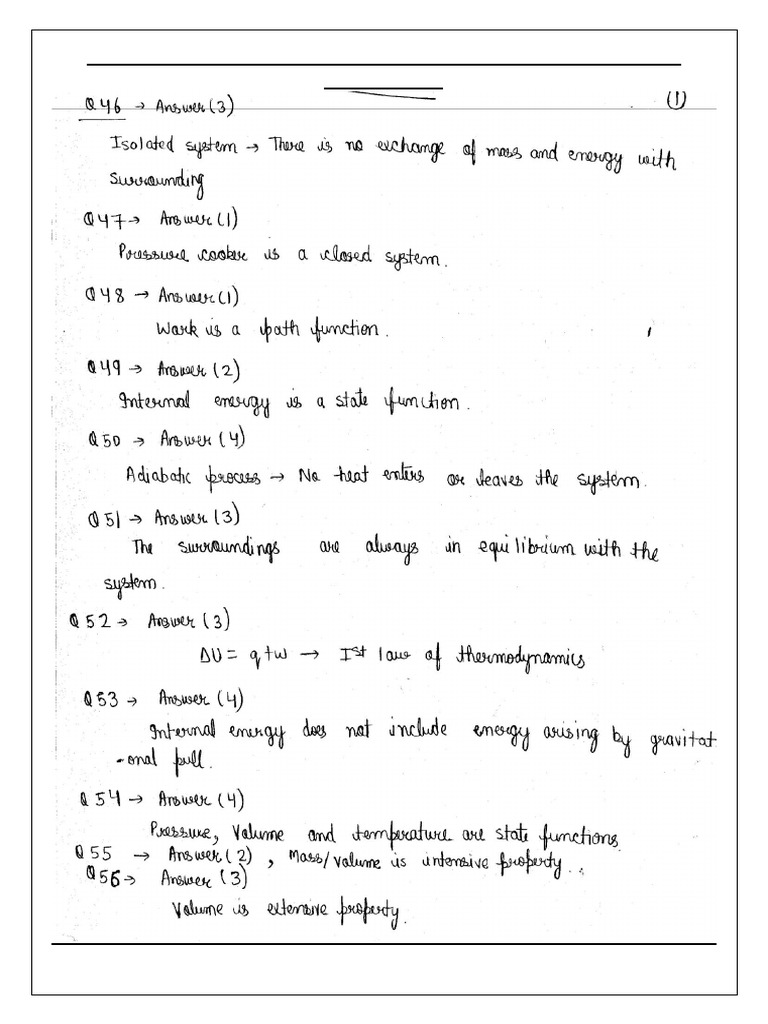 Q46 → Answer (3)
(1)
Isolated system → There is no exchange of mass and energy with
surrounding
Q47 → Answer (1)
Pressure cooker is a closed system.
Q48 → Answer (1)
Work is a path function.
Q49 → Answer (2)
Internal energy is a state function.
Q50 → Answer (4)
Adiabatic process → No heat enters or leaves the system.
Q51 → Answer (3)
The surroundings are always in equilibrium with the
system.
Q52 → Answer (3)
ΔU = q+w → Ist law of thermodynamics
Q53 → Answer (4)
Internal energy does not include energy arising by gravitat
-onal pull.
Q54 → Answer (4)
Pressure, Volume and temperature are state functions.
Q55 → Answer (2), Mass/volume is intensive property.
Q56 → Answer (3)
Volume is extensive property.